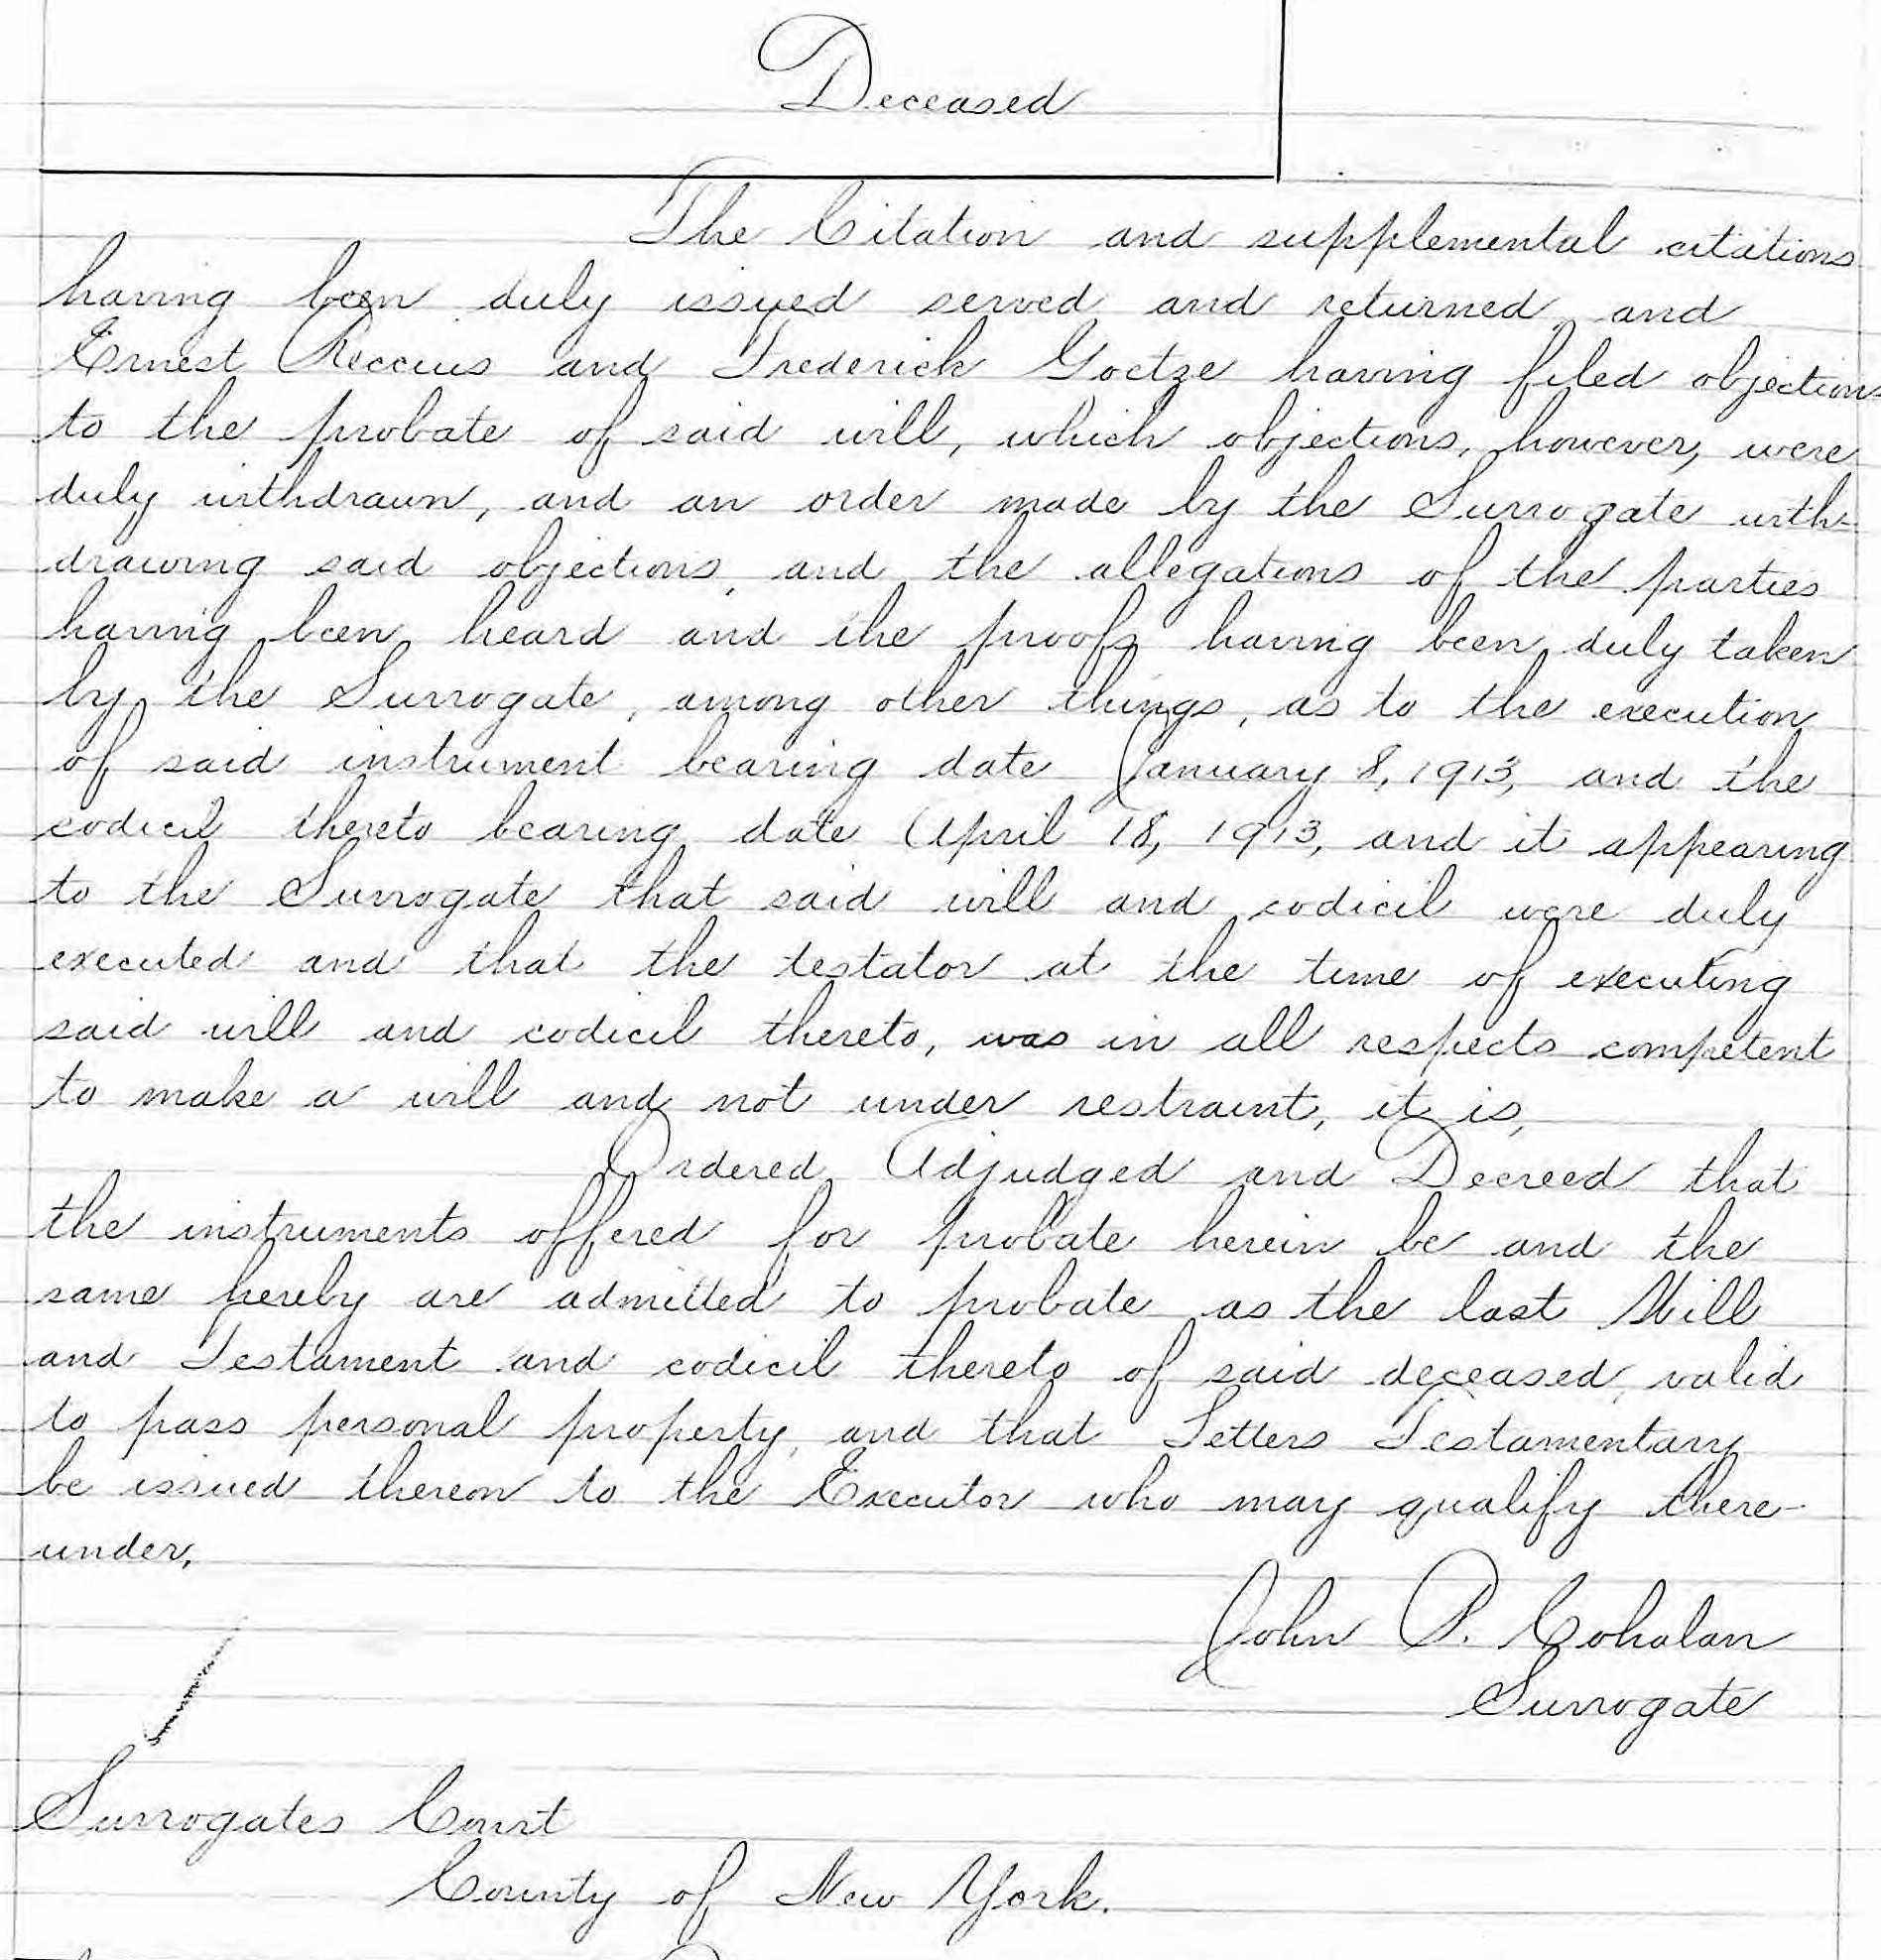 Deceased
The Citation and supplemental citations
having been duly issued served and returned and
Ernest Reccius and Frederick Goetze having filed objections
to the probate of said will, which objections, however, were
duly withdrawn, and an order made by the Surrogate with-
drawing said objections, and the allegations of the parties
having been heard and the proofs having been duly taken
by the Surrogate, among other things, as to the execution
of said instrument bearing date January 8, 1913, and the
codicil thereto bearing date April 18, 1913, and it appearing
to the Surrogate that said will and codicil were duly
executed and that the testator at the time of executing
said will and codicil thereto, was in all respects competent
to make a will and not under restraint, it is,
Ordered Adjudged and Decreed that
the instruments offered for probate herein be and the
same hereby are admitted to probate as the last Will
and Testament and codicil thereto of said deceased, valid
to pass personal property, and that Letters Testamentary
be issued thereon to the Executor who may qualify there-
under.
John P. Cohalan
Surrogate
Surrogates Court
County of New York.